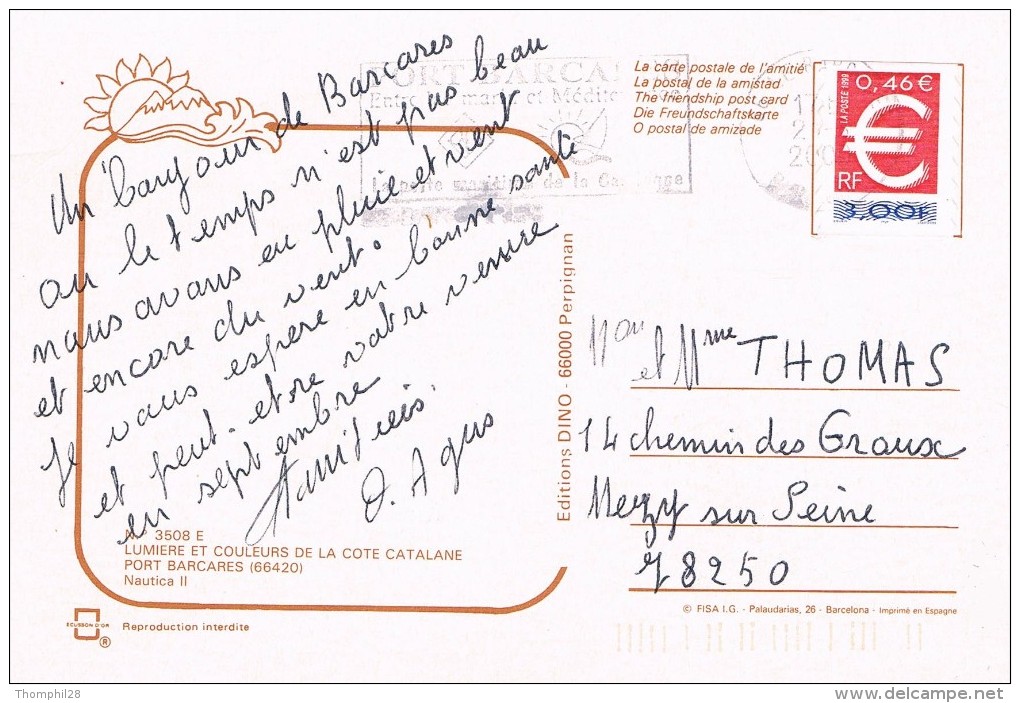 Un bonjour de Barcares
ou le temps n'est pas beau
nous avons eu pluie et vent
et encore du vent.
Je vous espere en bonne santé
et peut-etre votre venue
en septembre
Amitiés.
O. Agus
N° 3508 E
LUMIERE ET COULEURS DE LA COTE CATALANE
PORT BARCARES (66420)
Nautica II
ECUSSON D'OR
®
Reproduction interdite
Editions DINO - 66000 Perpignan
PORT BARCA
Entre et Médite
La carte postale de l'amitié
La postal de la amistad
The friendship post card
Die Freundschaftskarte
O postal de amizade
LA POSTE 1999
0,46 €
€
RF
3,00F
Mme
et Mme THOMAS
14 chemin des Graux
Mezy sur Seine
78250
© FISA I.G. - Palaudarias, 26 - Barcelona - Imprimé en Espagne
Thomphil28
delcampe.net